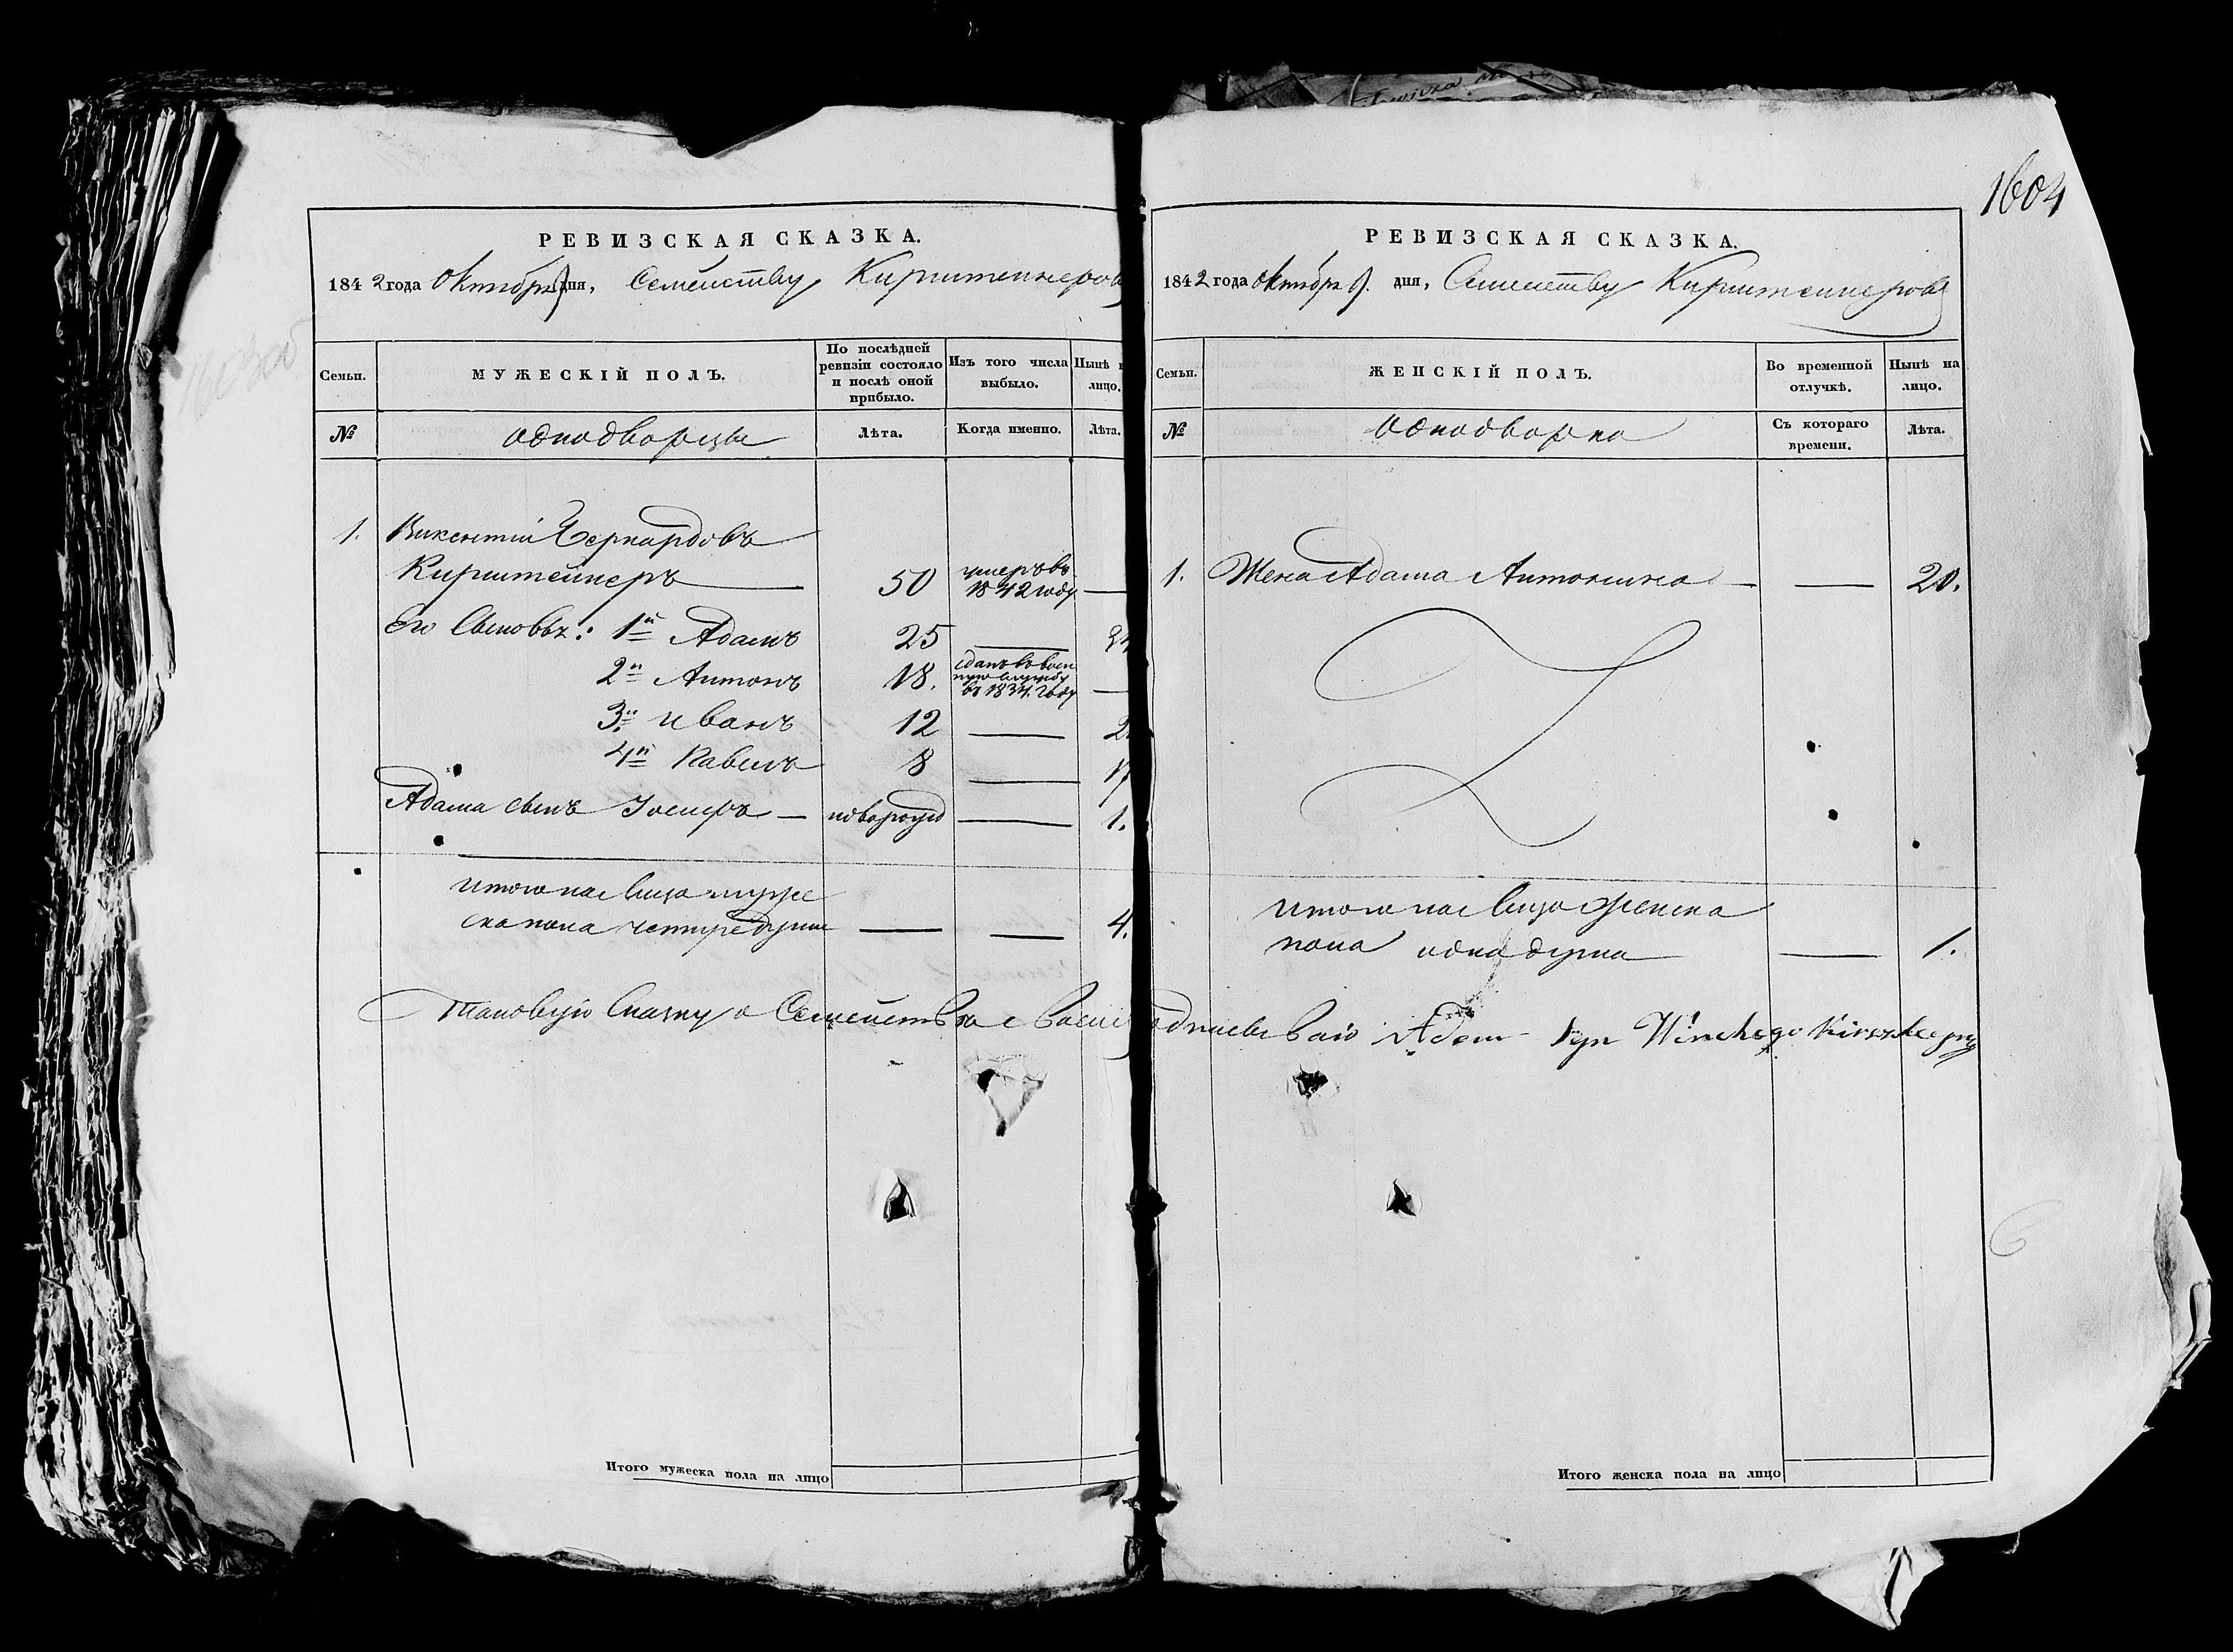 1604
РЕВИЗСКАЯ СКАЗКА.
1842 года Октября дня, Семейству Кирштейнеров
Семьи.
МУЖЕСКІЙ ПОЛЪ.
По послѣдней ревизіи состояло и послѣ оной прибыло.
Изъ того числа выбыло.
Нынѣ лицо.
№
однодворцы
Лѣта.
Когда именно.
Лѣта.
1. Викентій Бернардовъ
Кирштейнеръ 50 умеръ въ 1842 году
Его Сыновья: 1й Адамъ 25
2й Антонъ 18. сданъ въ воен ную службу въ 1834. году
3й иванъ 12
4й Павелъ 8
Адама сынъ Іосифъ — новорожд 1.
итого на лицо муже
ска пола четыре души 4.
Таковую Сказку о Семействе своем
Итого мужеска пола на лицо
РЕВИЗСКАЯ СКАЗКА.
1842 года октября 9. дня, Семейству Кирштейнеровъ
Семьи.
ЖЕНСКІЙ ПОЛЪ.
Во временной отлучкѣ.
Нынѣ на лицо.
№
однодворка
Съ котораго времени.
Лѣта.
1. Жена Адама Антонина — 20.
итого на лицо женска
пола одна душа 1.
одписываю Adam syn
Итого женска пола на лицо